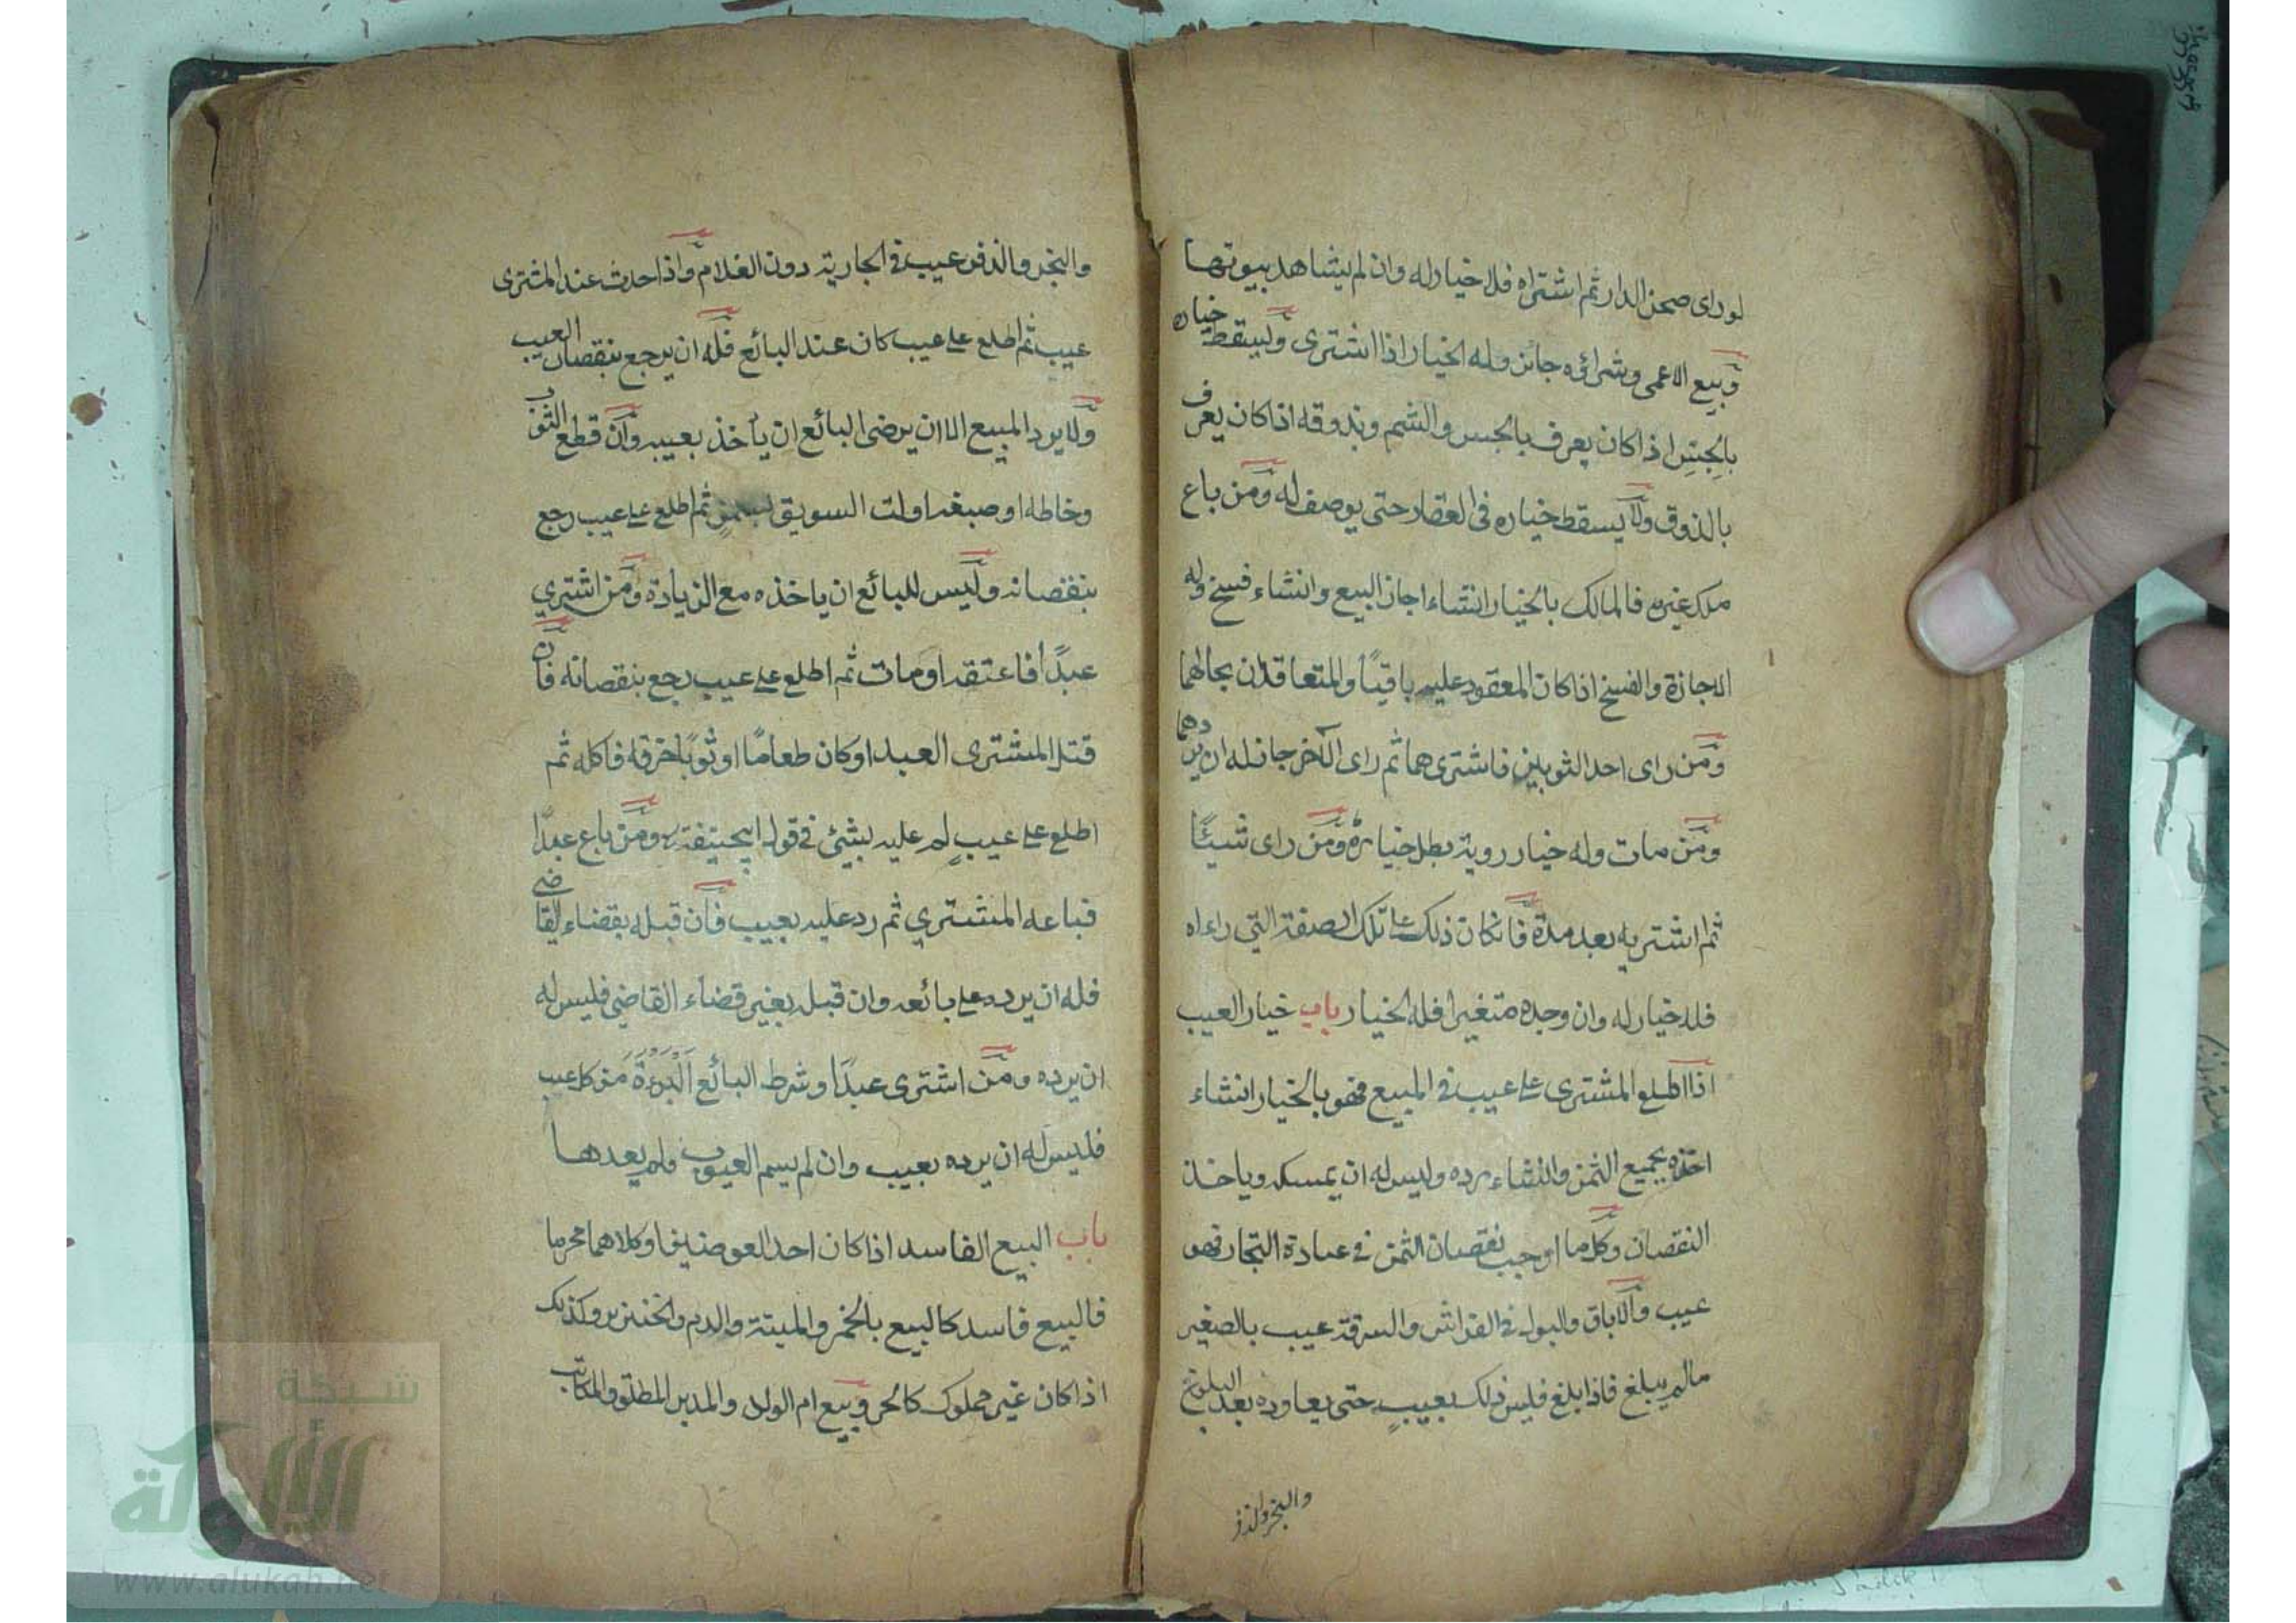 لو رای صحن الدار ثم اشتراه فلا خيار له وان لم يشاهد بيوتها
وبيع الاعمى وشراؤه جائز وله الخيار اذا اشترى وليسقط خياره
بالجس اذا كان يعرف بالجس والشم وبذوقه اذا كان يعرف
بالذوق ولا يسقط خياره فى العقار حتى يوصف له ومن باع
ملك غيره فالمالك بالخيار انشاء اجاز البيع وانشاء فسخ وله
الاجازة والفسخ اذا كان المعقود عليه باقيًا والمتعاقدان بحالهما
ومن رای احد الثوبين فاشتريهما ثم رای الآخر جاز له ان يردهما
ومن مات وله خيار روية بطل خياره ومن رای شيئًا
ثم اشتريه بعد مدة فانكان ذلك على تلك الصفة التي راءاه
فلا خيار له وان وجده متغيرا فله الخيار باب خيار العيب
اذا اطلع المشترى على عيب فى المبيع فهو بالخيار انشاء
اخذه بجميع الثمن وانشاء رده وليس له ان يمسكه وياخذ
النقصان وكل ما اوجب نقصان الثمن فى عادة التجار فهو
عيب والاباق والبول فى الفراش والسرقة عيب بالصغير
مالم يبلغ فاذا بلغ فليس ذلك بعيبٍ حتى يعاوده بعد البلوغ
والبخر والذفر
والبخر والذفر عيب فى الجارية دون الغلام واذا حدث عند المشترى
عيب ثم اطلع على عيب كان عند البائع فله ان يرجع بنقصان العيب
ولا يرد المبيع الا ان يرضى البائع ان ياخذ بعيبه وان قطع الثوب
وخاطه او صبغه اولت السويق بسمنٍ ثم اطلع على عيب رجع
بنقصانه وليس للبائع ان ياخذه مع الزيادة ومن اشترى
عبدًا فاعتقه او مات ثم اطلع على عيب رجع بنقصانه فان
قتل المشترى العبد او كان طعامًا او ثوبًا خرقه فاكله ثم
اطلع على عيبٍ لم عليه بشيئ فى قول ابيحنيفة ومن باع عبدًا
فباعه المشتري ثم رد عليه بعيب فان قبله بقضاء القاضي
فله ان يرده على بائعه وان قبله بغير قضاء القاضي فليس له
ان يرده ومن اشترى عبدًا وشرط البائع البرءة من كل عيب
فليس له ان يرده بعيب وان لم يسم العيوب ولم يعدها
باب البيع الفاسد اذا كان احد العوضين او كلاهما محرما
فالبيع فاسد كالبيع بالخمر والميتة والدم والخنزير وكذلك
اذا كان غير مملوك كالحر وبيع ام الولد والمدبر المطلق والمكاتب
شبكة
الألوكة
www.alukah.net